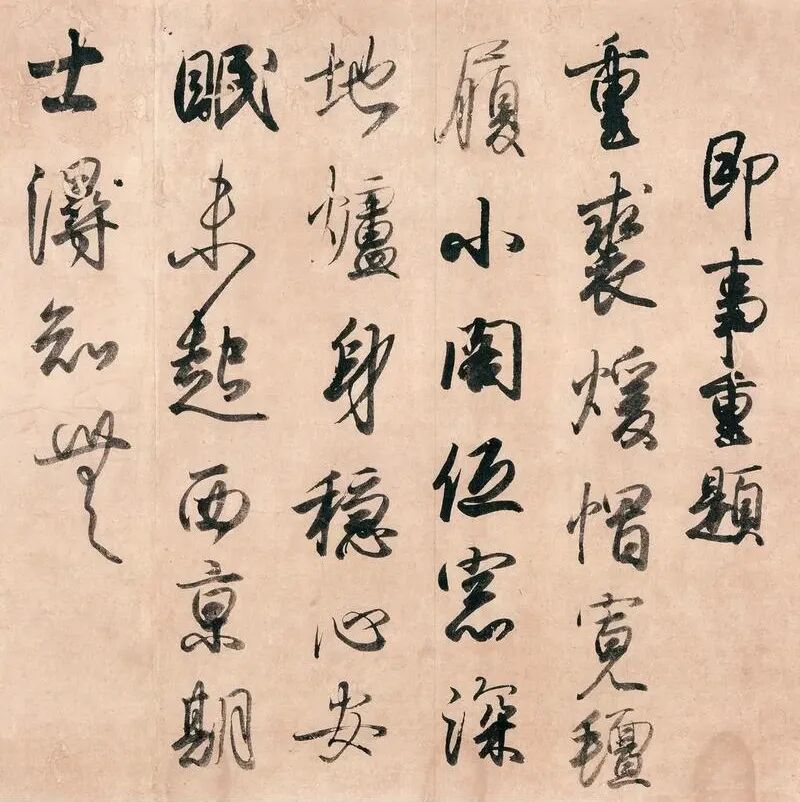 即事重題
重裘煖帽寬氊
履小閣低窓深
地爐身穩心安
眠未起西京朝
士得知無